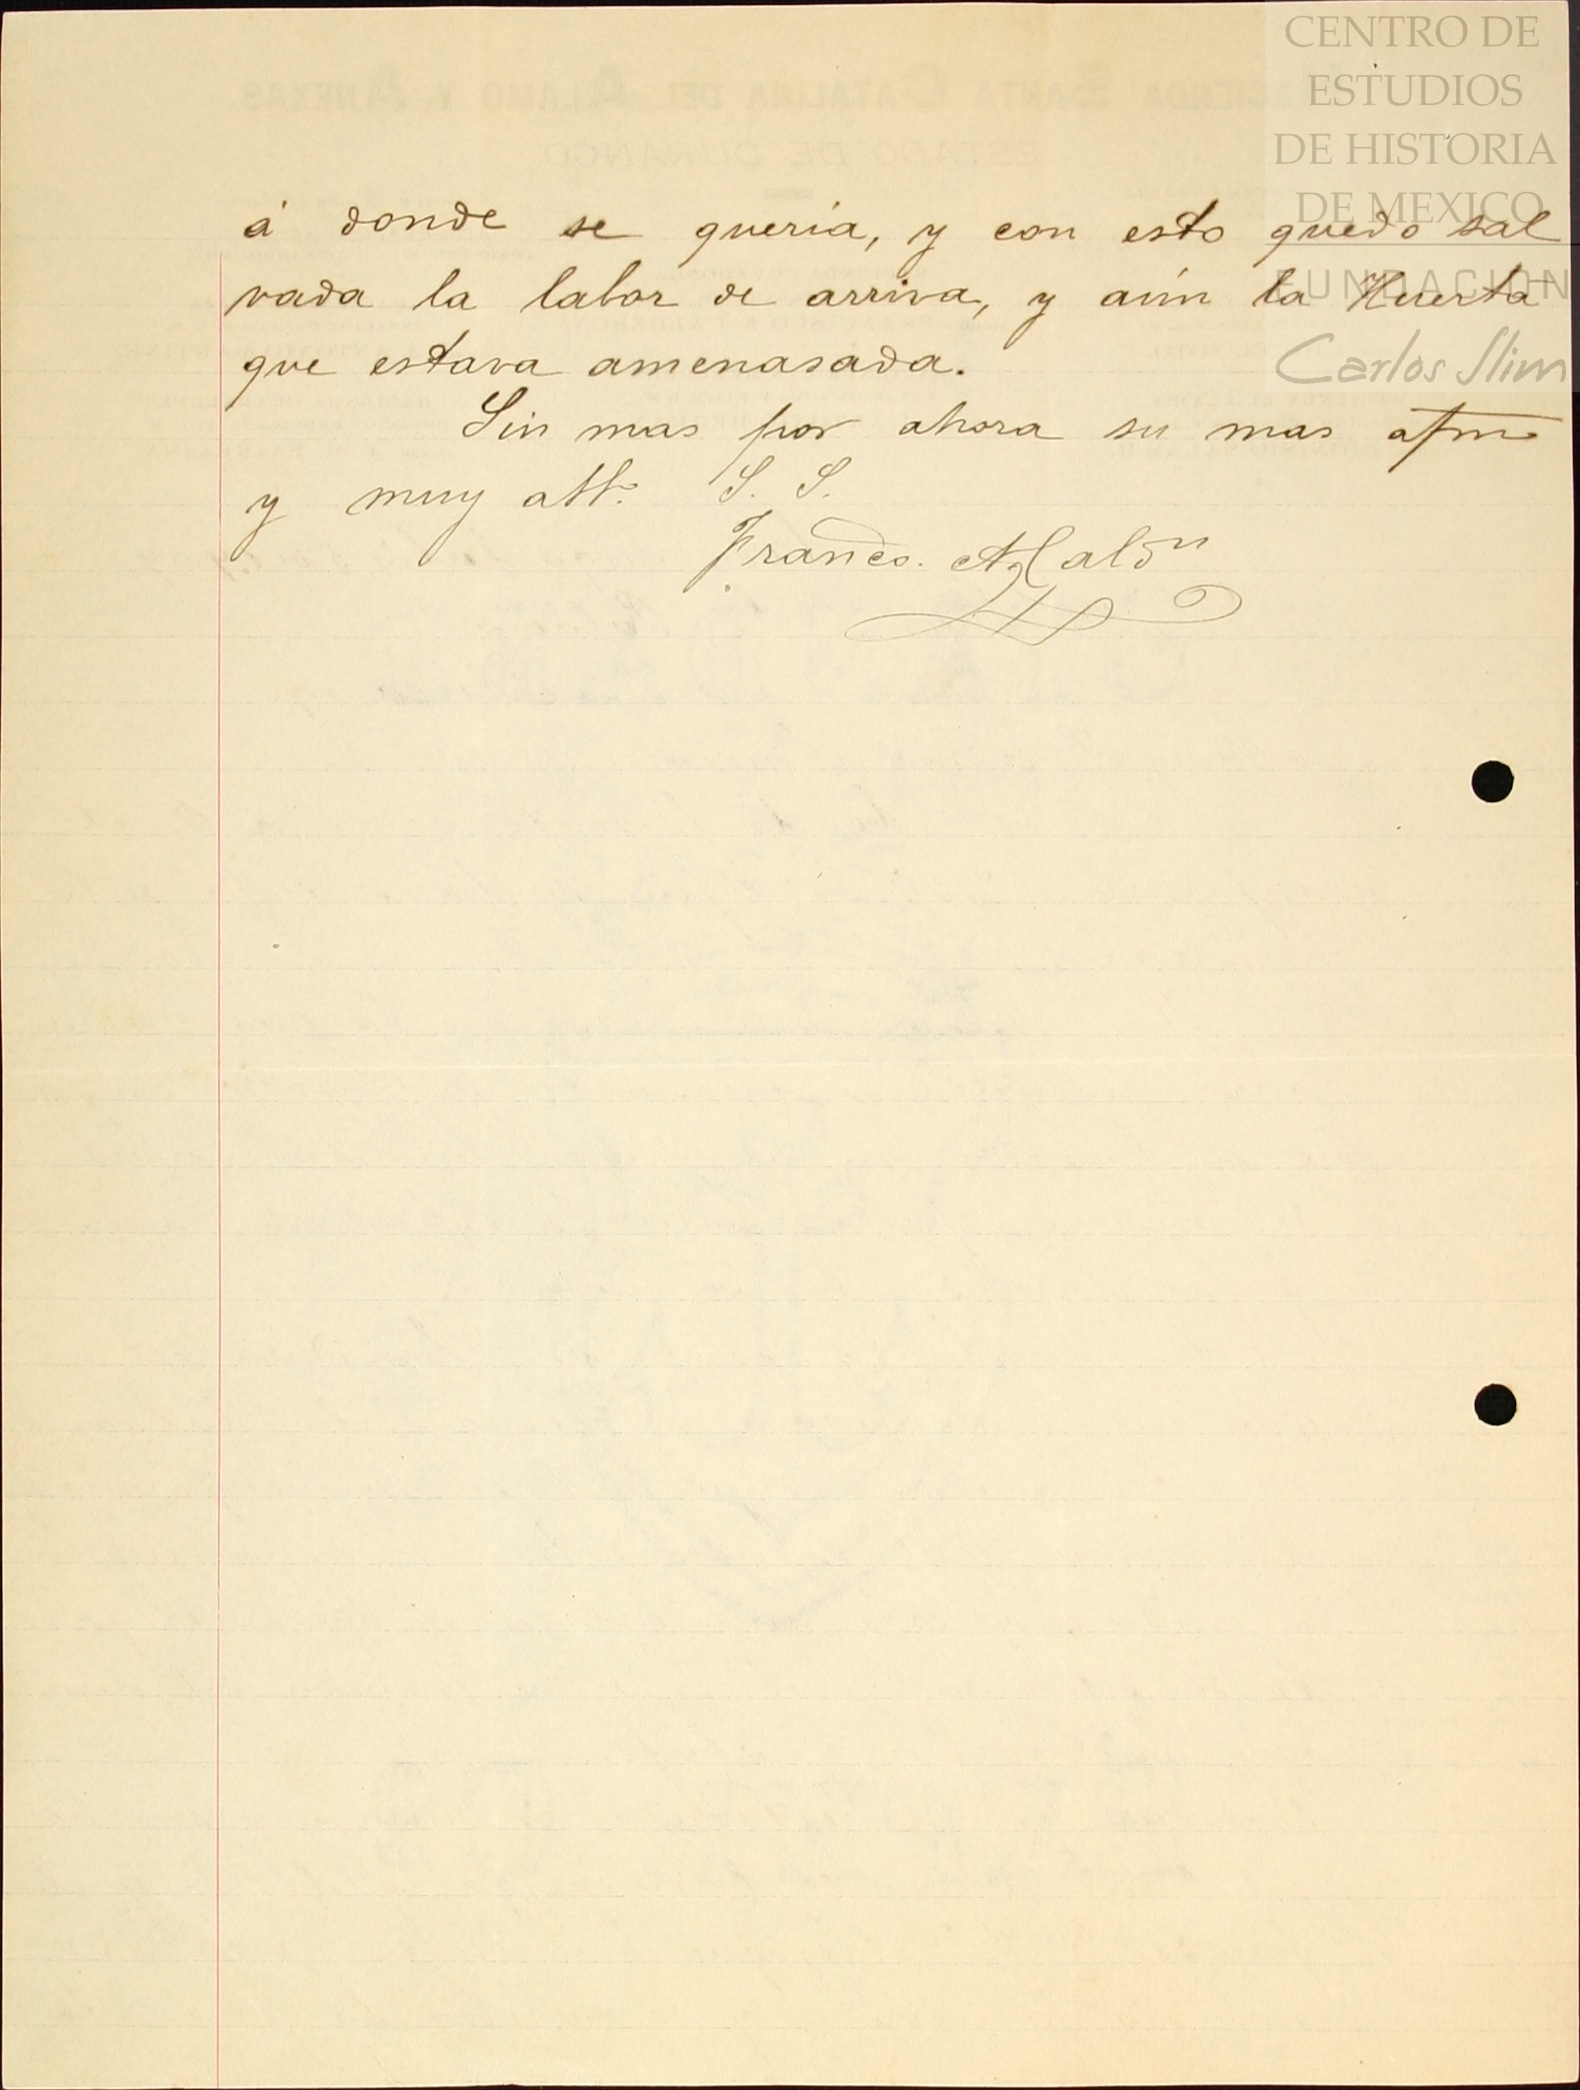 CENTRO DE
ESTUDIOS
DE HISTORIA
DE MEXICO
FUNDACION
Carlos Slim
á donde se queria, y con esto quedo sal
vada la labor de arriva, y aún la Huerta
que estava amenasada.
Sin mas por ahora su mas afmo
y muy atto. S. S.
Franco.